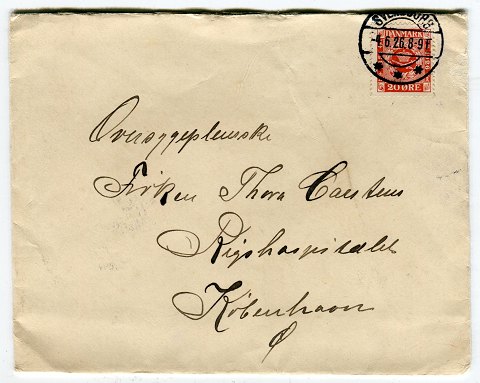 SVENDBORG
6.26.8-9F
DANMARK
20 ØRE
Oversygeplejerske
Frøken Thora Carstens
Rigshospitalet
København
Ø